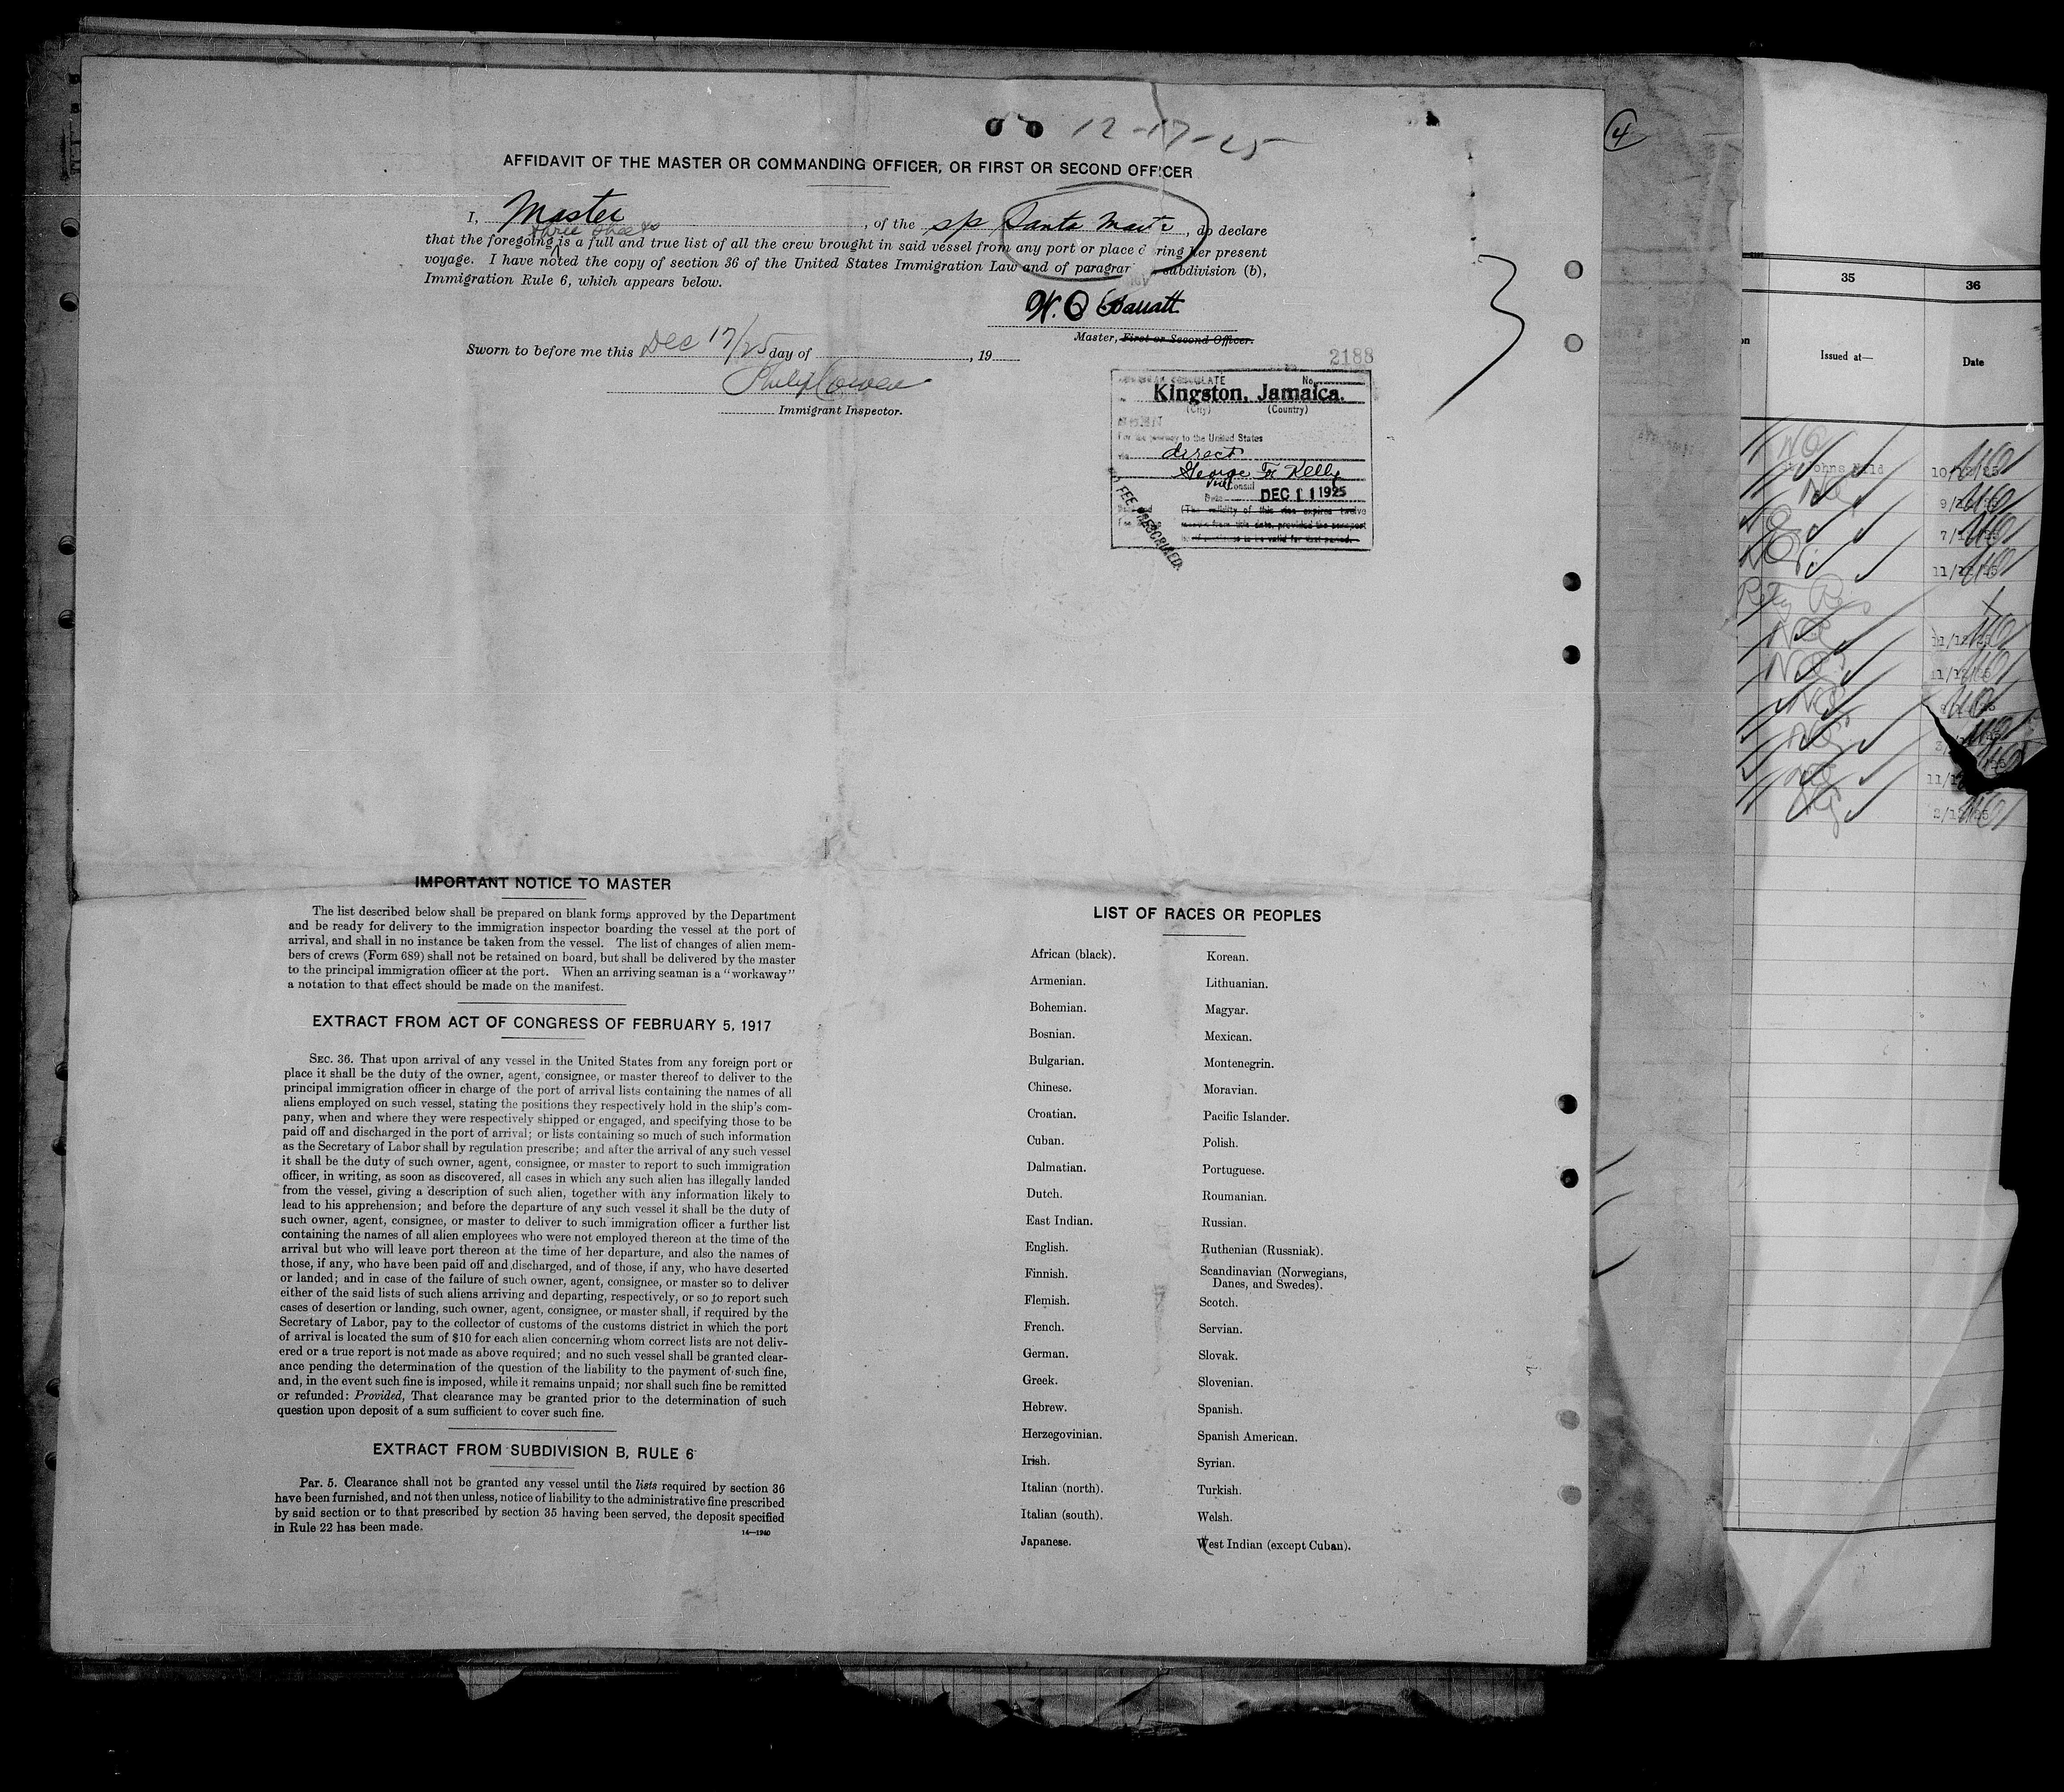 12-17-25
AFFIDAVIT OF THE MASTER OR COMMANDING OFFICER, OR FIRST OR SECOND OFFICER
I, Master, of the s/s Santa Marta, do declare
three sheets
that the foregoing is a full and true list of all the crew brought in said vessel from any port or place d ring her present
voyage. I have noted the copy of section 36 of the United States Immigration Law and of paragrap subdivision (b),
Immigration Rule 6, which appears below.
W. O Barratt
Master, First or Second Officer.
Sworn to before me this Dec 17/25 day of , 19
Philip Cowen
Immigrant Inspector.
2188
No.
Kingston, Jamaica.
(City) (Country)
For the journey to the United States
direct
George F. Kelly
Vice Consul
Date DEC 11 1925
(The validity of this visa expires twelve
months from this date, provided the passport
continues to be valid for that period.
NO FEE PRESCRIBED.
IMPORTANT NOTICE TO MASTER
The list described below shall be prepared on blank forms approved by the Department
and be ready for delivery to the immigration inspector boarding the vessel at the port of
arrival, and shall in no instance be taken from the vessel. The list of changes of alien mem-
bers of crews (Form 689) shall not be retained on board, but shall be delivered by the master
to the principal immigration officer at the port. When an arriving seaman is a "workaway"
a notation to that effect should be made on the manifest.
EXTRACT FROM ACT OF CONGRESS OF FEBRUARY 5, 1917
SEC. 36. That upon arrival of any vessel in the United States from any foreign port or
place it shall be the duty of the owner, agent, consignee, or master thereof to deliver to the
principal immigration officer in charge of the port of arrival lists containing the names of all
aliens employed on such vessel, stating the positions they respectively hold in the ship's com-
pany, when and where they were respectively shipped or engaged, and specifying those to be
paid off and discharged in the port of arrival; or lists containing so much of such information
as the Secretary of Labor shall by regulation prescribe; and after the arrival of any such vessel
it shall be the duty of such owner, agent, consignee, or master to report to such immigration
officer, in writing, as soon as discovered, all cases in which any such alien has illegally landed
from the vessel, giving a description of such alien, together with any information likely to
lead to his apprehension; and before the departure of any such vessel it shall be the duty of
such owner, agent, consignee, or master to deliver to such immigration officer a further list
containing the names of all alien employees who were not employed thereon at the time of the
arrival but who will leave port thereon at the time of her departure, and also the names of
those, if any, who have been paid off and discharged, and of those, if any, who have deserted
or landed; and in case of the failure of such owner, agent, consignee, or master so to deliver
either of the said lists of such aliens arriving and departing, respectively, or so to report such
cases of desertion or landing, such owner, agent, consignee, or master shall, if required by the
Secretary of Labor, pay to the collector of customs of the customs district in which the port
of arrival is located the sum of $10 for each alien concerning whom correct lists are not deliv-
ered or a true report is not made as above required; and no such vessel shall be granted clear-
ance pending the determination of the question of the liability to the payment of such fine,
and, in the event such fine is imposed, while it remains unpaid; nor shall such fine be remitted
or refunded: Provided, That clearance may be granted prior to the determination of such
question upon deposit of a sum sufficient to cover such fine.
EXTRACT FROM SUBDIVISION B, RULE 6
Par. 5. Clearance shall not be granted any vessel until the lists required by section 36
have been furnished, and not then unless, notice of liability to the administrative fine prescribed
by said section or to that prescribed by section 35 having been served, the deposit specified
in Rule 22 has been made.
14—1240
LIST OF RACES OR PEOPLES
African (black).
Armenian.
Bohemian.
Bosnian.
Bulgarian.
Chinese.
Croatian.
Cuban.
Dalmatian.
Dutch.
East Indian.
English.
Finnish.
Flemish.
French.
German.
Greek.
Hebrew.
Herzegovinian.
Irish.
Italian (north).
Italian (south).
Japanese.
Korean.
Lithuanian.
Magyar.
Mexican.
Montenegrin.
Moravian.
Pacific Islander.
Polish.
Portuguese.
Roumanian.
Russian.
Ruthenian (Russniak).
Scandinavian (Norwegians,
Danes, and Swedes).
Scotch.
Servian.
Slovak.
Slovenian.
Spanish.
Spanish American.
Syrian.
Turkish.
Welsh.
West Indian (except Cuban).
4
35 36
Issued at— Date